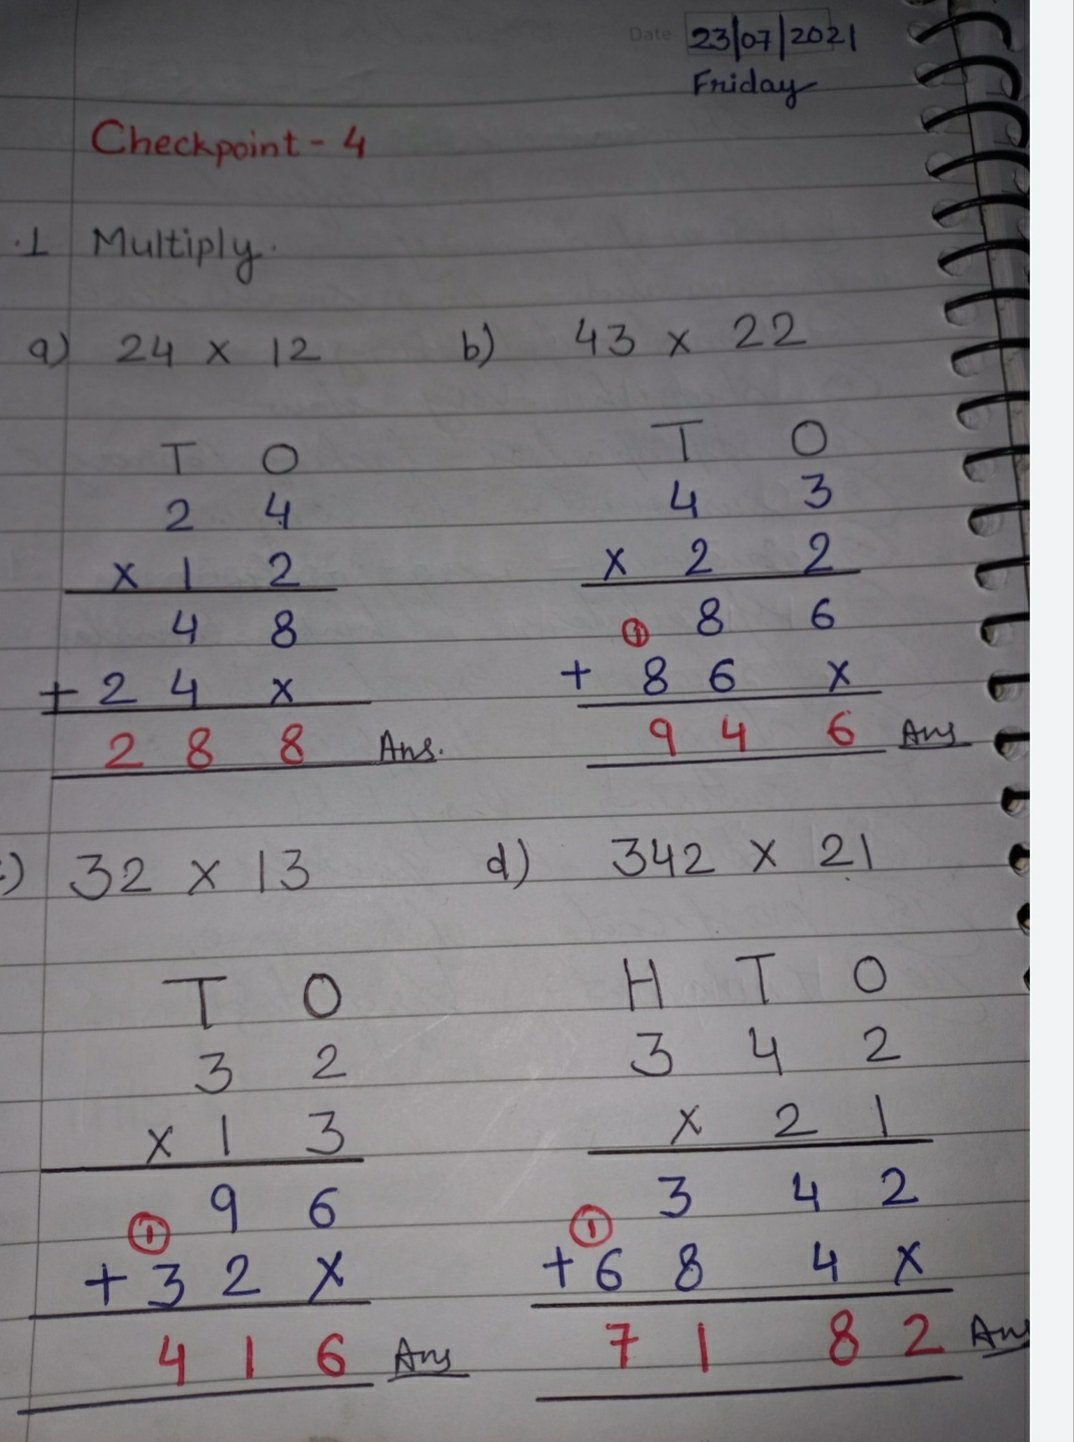 Date 23/07/2021
Friday
Checkpoint - 4
.1 Multiply.
a) 24 x 12 b) 43 x 22
T O T O
2 4 4 3
x 1 2 x 2 2
4 8 ① 8 6
+ 2 4 x + 8 6 x
2 8 8 Ans. 9 4 6 Ans
) 32 x 13 d) 342 x 21
T O H T O
3 2 3 4 2
x 1 3 x 2 1
9 6 3 4 2
① ①
+ 3 2 x + 6 8 4 x
4 1 6 Ans 7 1 8 2 Ans